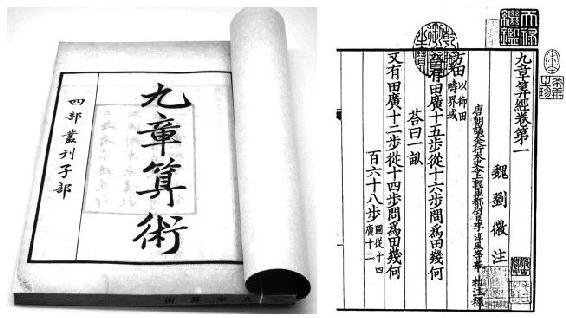 九章算術
四部叢刊子部
九章算經卷第一
魏劉徽注
唐朝議大夫行太史令上輕車都尉臣李淳風等奉 注釋
方田以御田
疇界域
今有田廣十五步從十六步問爲田幾何
荅曰一畝
又有田廣十二步從十四步問爲田幾何
百六十八步圖從十四
廣十二